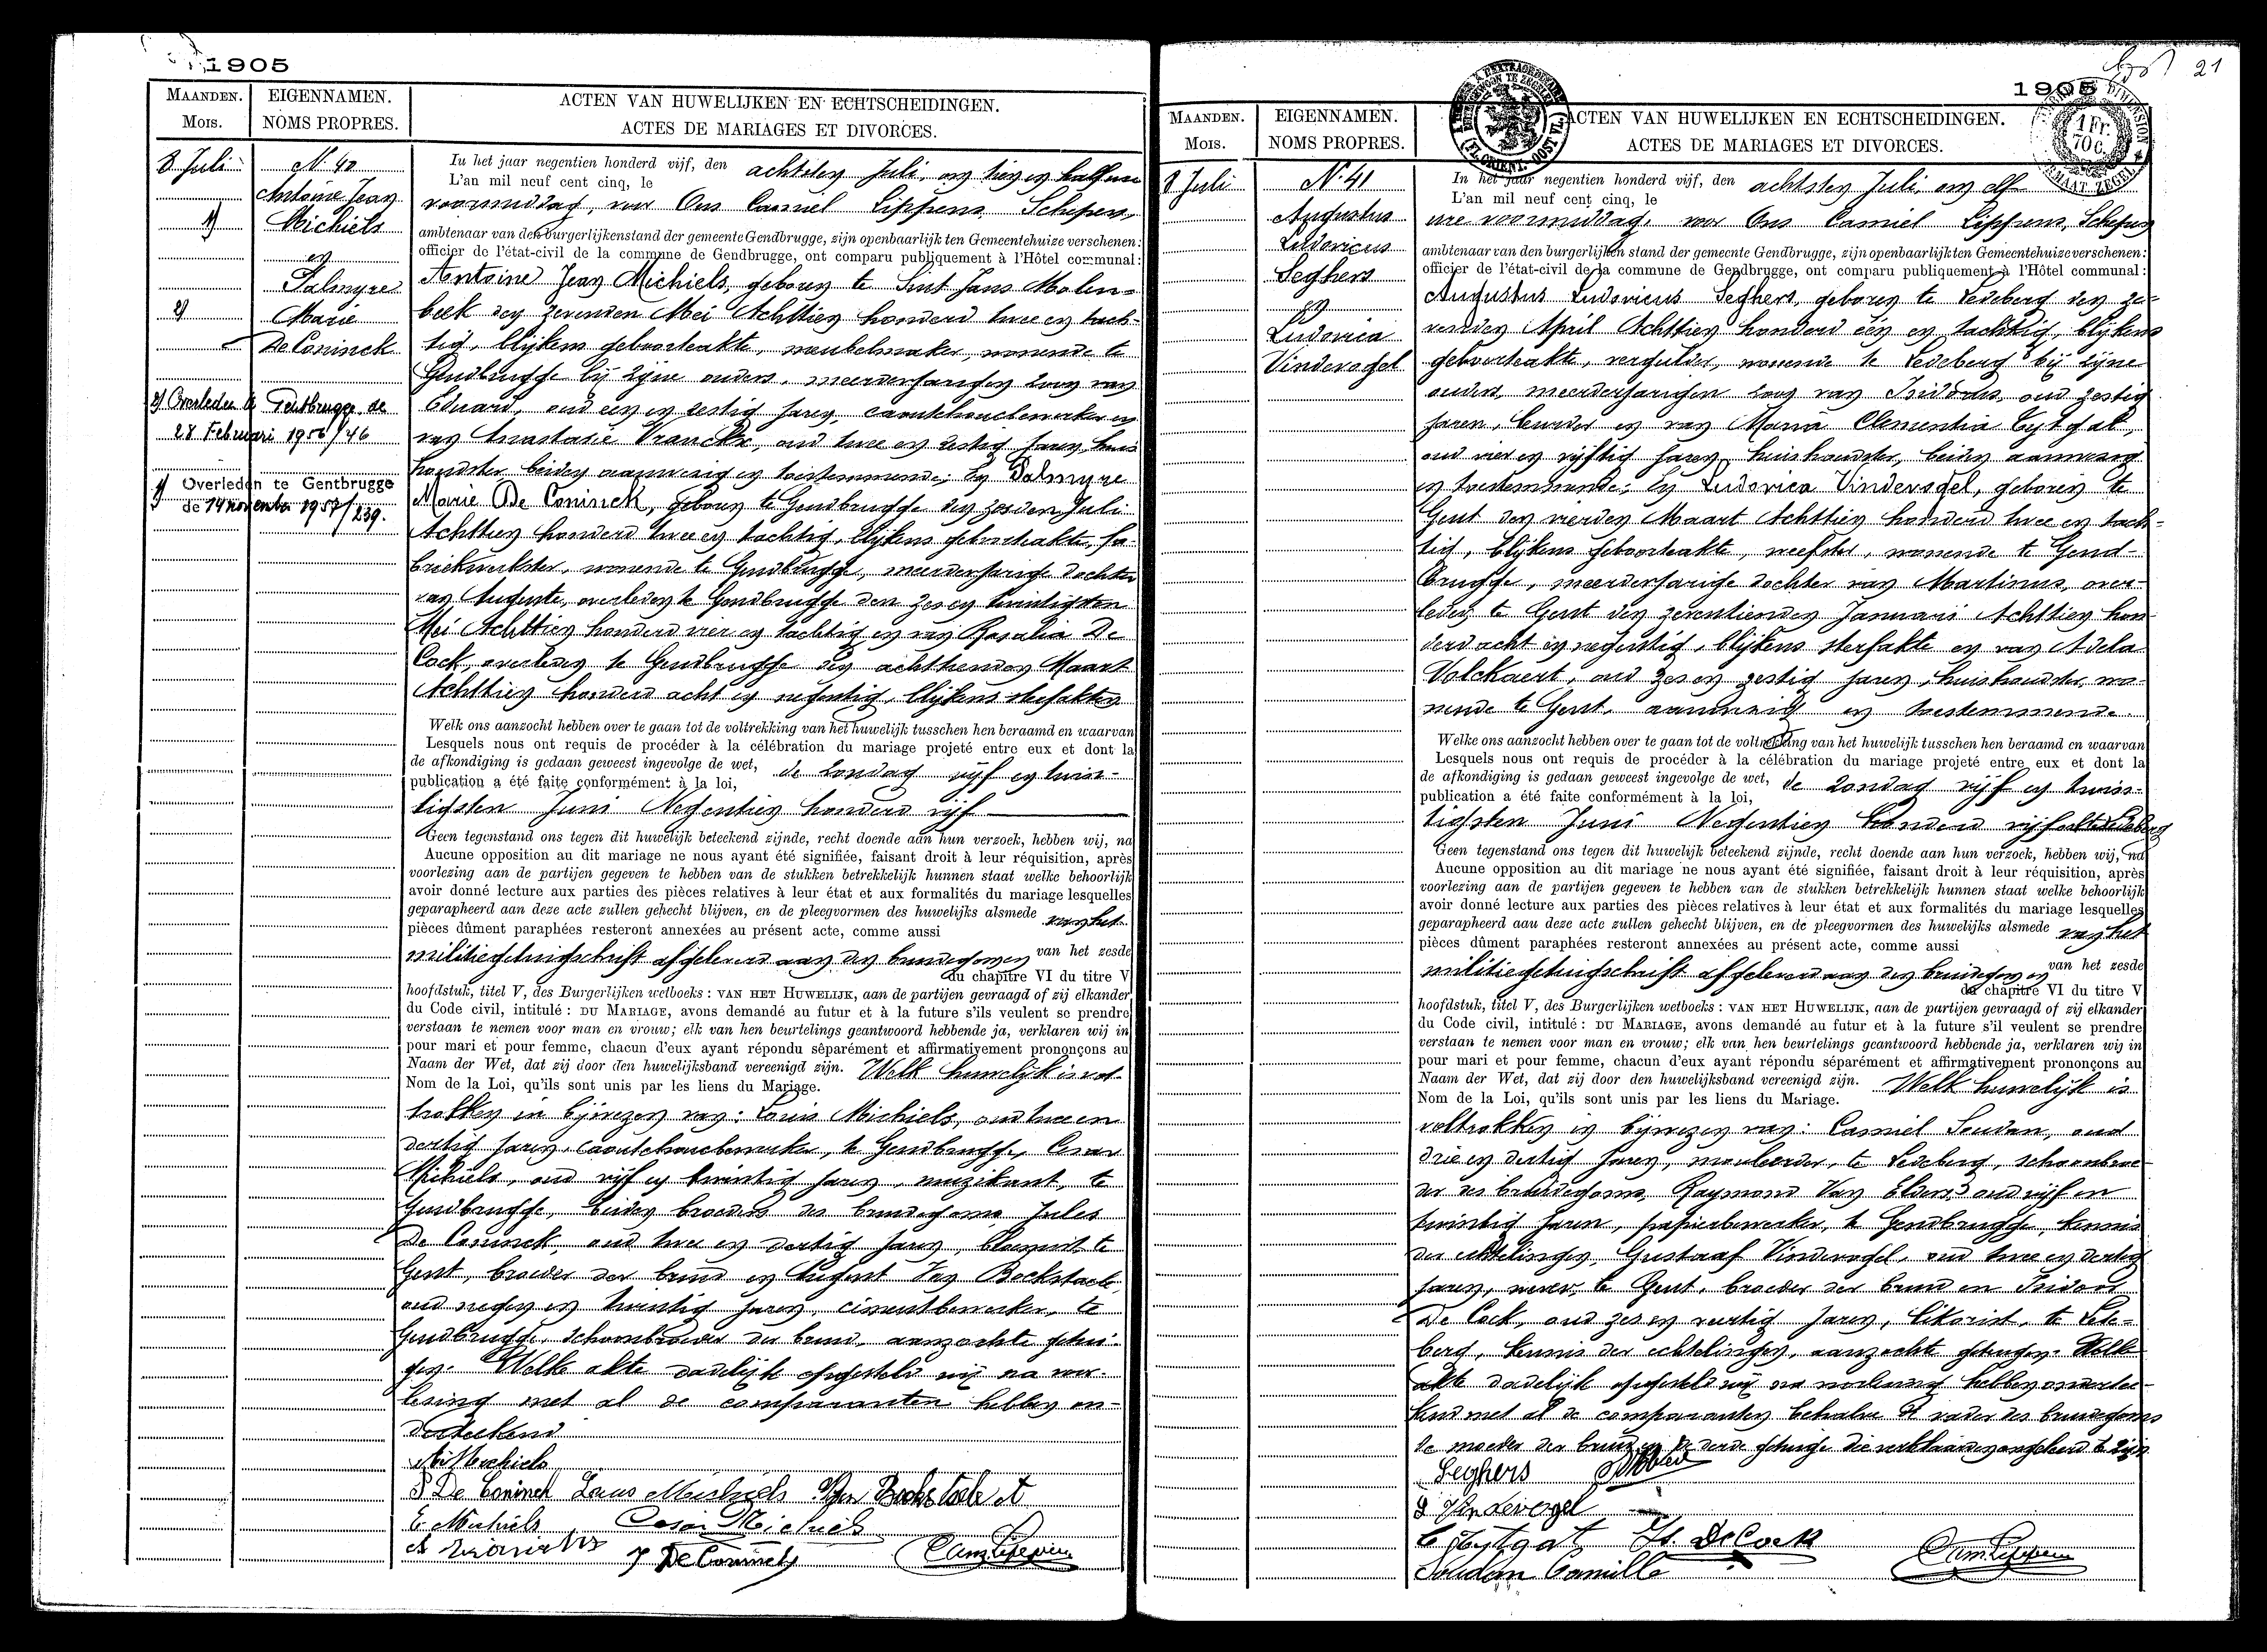 1905
MAANDEN.
Mois.
EIGENNAMEN.
NOMS PROPRES.
ACTEN VAN HUWELIJKEN EN ECHTSCHEIDINGEN.
ACTES DE MARIAGES ET DIVORCES.
8 Juli
N. 40
Antoine Jean
1)
Michiels
en
Palmyre
2)
Marie
De Coninck
2) Overleden te Gentbrugge de
28 Februari 1956/46
1) Overleden te Gentbrugge
de 14 november 1957/239.
In het jaar negentien honderd vijf, den achtsten Juli, om tien en half ure
L'an mil neuf cent cinq, le
voormiddag, voor Ons Camiel Lippens, Schepen,
ambtenaar van den burgerlijkenstand der gemeente Gendbrugge, zijn openbaarlijk ten Gemeentehuize verschenen:
officier de l'état-civil de la commune de Gendbrugge, ont comparu publiquement à l'Hôtel communal:
Antoine Jean Michiels, geboren te Sint Jans Molen-
beek den zevensten Mei Achttien honderd twee en tach-
tig, blijkens geboorteakte, meubelmaker, wonende te
Gendbrugge bij zijne ouders, meerderjarigen zoon van
Eduard, oud een en zestig jaren, caoutchoucbewerker en
van Anastasie Vranckx, oud twee en zestig jaren, huis
houdster beiden aanwezig en toestemmende; En Palmyre
Marie De Coninck, geboren te Gendbrugge den zesden Juli
Achttien honderd twee en tachtig, blijkens geboorteakte, fa-
briekwerkster, wonende te Gendbrugge, meerderjarige dochter
van Auguste, overleden te Gendbrugge den zes en twintigsten
Mei Achttien honderd vier en tachtig en van Rosalia De
Cock, overleden te Gendbrugge den achttienden Maart
Achttien honderd acht en negentig, blijkens sterfakten
Welk ons aanzocht hebben over te gaan tot de voltrekking van het huwelijk tusschen hen beraamd en waarvan
Lesquels nous ont requis de procéder à la célébration du mariage projeté entre eux et dont la
de afkondiging is gedaan geweest ingevolge de wet, de zondag vijf en twin-
publication a été faite conformément à la loi,
tigsten Juni Negentien honderd vijf
Geen tegenstand ons tegen dit huwelijk beteekend zijnde, recht doende aan hun verzoek, hebben wij, na
Aucune opposition au dit mariage ne nous ayant été signifiée, faisant droit à leur réquisition, après
voorlezing aan de partijen gegeven te hebben van de stukken betrekkelijk hunnen staat welke behoorlijk
avoir donné lecture aux parties des pièces relatives à leur état et aux formalités du mariage lesquelles
geparapheerd aan deze acte zullen gehecht blijven, en de pleegvormen des huwelijks alsmede van het
pièces dûment paraphées resteront annexées au présent acte, comme aussi
militiegetuigschrift afgeleverd aan den bruidegom en van het zesde
du chapitre VI du titre V
hoofdstuk, titel V, des Burgerlijken wetboeks: VAN HET HUWELIJK, aan de partijen gevraagd of zij elkander
du Code civil, intitulé: DU MARIAGE, avons demandé au futur et à la future s'ils veulent se prendre
verstaan te nemen voor man en vrouw; elk van hen beurtelings geantwoord hebbende ja, verklaren wij in
pour mari et pour femme, chacun d'eux ayant répondu séparément et affirmativement prononçons au
Naam der Wet, dat zij door den huwelijksband vereenigd zijn. Welk huwelijk is vol-
Nom de la Loi, qu'ils sont unis par les liens du Mariage.
trokken in bijwezen van: Louis Michiels, oud twee en
dertig jaren, caoutchoucbewerker, te Gendbrugge, Cesar
Michiels, oud vijf en twintig jaren, muzikant, te
Gendbrugge, beiden broeders des bruidegoms, Jules
De Coninck, oud twee en dertig jaren, bloemist te
Gent, broeder der bruid en August Van Bockstaele
oud negen en twintig jaren, cimentbewerker, te
Gendbrugge, schoonbroeder der bruid, aanzochte getui-
gen. Welke akte dadelijk opgesteld wij na voor-
lezing met al de comparanten hebben on-
derteekend
A. Michiels
P De Coninck Louis Michiels Van Bockstaele A
E. Michiels Cesar Michiels
J De Coninck Cam. Lippens
21
1905
1 Fr.
70 c.
MAANDEN.
Mois.
EIGENNAMEN.
NOMS PROPRES.
ACTEN VAN HUWELIJKEN EN ECHTSCHEIDINGEN.
ACTES DE MARIAGES ET DIVORCES.
8 Juli
N. 41
Augustus
Ludovicus
Seghers
en
Ludovica
Vindevogel
In het jaar negentien honderd vijf, den achtsten Juli, om elf
L'an mil neuf cent cinq, le
ure voormiddag, voor Ons Camiel Lippens, Schepen
ambtenaar van den burgerlijken stand der gemeente Gendbrugge, zijn openbaarlijk ten Gemeentehuize verschenen:
officier de l'état-civil de la commune de Gendbrugge, ont comparu publiquement à l'Hôtel communal:
Augustus Ludovicus Seghers, geboren te Ledeberg den ze-
vensten April Achttien honderd één en tachtig, blijkens
geboorteakte, vergulder, wonende te Ledeberg bij zijne
ouders, meerderjarigen zoon van Isidorus, oud zestig
jaren, voerder en van Maria Clementia Tytgat,
oud vier en vijftig jaren, huishoudster, beiden aanwezig
en toestemmende; En Ludovica Vindevogel, geboren te
Gent den vierden Maart Achttien honderd twee en tach-
tig, blijkens geboorteakte, weefster, wonende te Gend-
brugge, meerderjarige dochter van Martinus, over-
leden te Gent den zeventienden Januari Achttien hon
derd acht en negentig, blijkens sterfakte en van Adela
Volckaert, oud zes en zestig jaren, huishoudster, wo-
nende te Gent, aanwezig en toestemmende.
Welke ons aanzocht hebben over te gaan tot de voltrekking van het huwelijk tusschen hen beraamd en waarvan
Lesquels nous ont requis de procéder à la célébration du mariage projeté entre eux et dont la
de afkondiging is gedaan geweest ingevolge de wet, de zondag vijf en twin-
publication a été faite conformément à la loi,
tigsten Juni Negentien honderd vijf alhier Ledeberg
Geen tegenstand ons tegen dit huwelijk beteekend zijnde, recht doende aan hun verzoek, hebben wij, na
Aucune opposition au dit mariage ne nous ayant été signifiée, faisant droit à leur réquisition, après
voorlezing aan de partijen gegeven te hebben van de stukken betrekkelijk hunnen staat welke behoorlijk
avoir donné lecture aux parties des pièces relatives à leur état et aux formalités du mariage lesquelles
geparapheerd aan deze acte zullen gehecht blijven, en de pleegvormen des huwelijks alsmede van het
pièces dûment paraphées resteront annexées au présent acte, comme aussi
militiegetuigschrift afgeleverd aan den bruidegom en van het zesde
du chapitre VI du titre V
hoofdstuk, titel V, des Burgerlijken wetboeks: VAN HET HUWELIJK, aan de partijen gevraagd of zij elkander
du Code civil, intitulé: DU MARIAGE, avons demandé au futur et à la future s'il veulent se prendre
verstaan te nemen voor man en vrouw; elk van hen beurtelings geantwoord hebbende ja, verklaren wij in
pour mari et pour femme, chacun d'eux ayant répondu séparément et affirmativement prononçons au
Naam der Wet, dat zij door den huwelijksband vereenigd zijn. Welk huwelijk is
Nom de la Loi, qu'ils sont unis par les liens du Mariage.
voltrokken in bijwezen van: Camiel Soudan, oud
drie en dertig jaren, mouleerder, te Ledeberg, schoonbroe-
der des bruidegoms, Raymond Van Elders, oud vijf en
twintig jaren, papierbewerker, te Gendbrugge, kennis
der echtelingen, Gustaaf Vindevogel, oud twee en dertig
jaren, wever, te Gent, broeder der bruid en Isidoor
De Cock, oud zes en veertig jaren, likorist, te Lede-
berg, kennis der echtelingen, aanzochte getuigen. Welke
akte dadelijk opgesteld wij na voorlezing hebben ondertee-
kend met al de comparanten behalve de vader des bruidegoms
de moeder der bruid en de derde getuige die verklaarden ongeleerd te zijn
Seghers
L Vindevogel
C Tytgat Is. De Cock
Soudan Camille Cam. Lippens